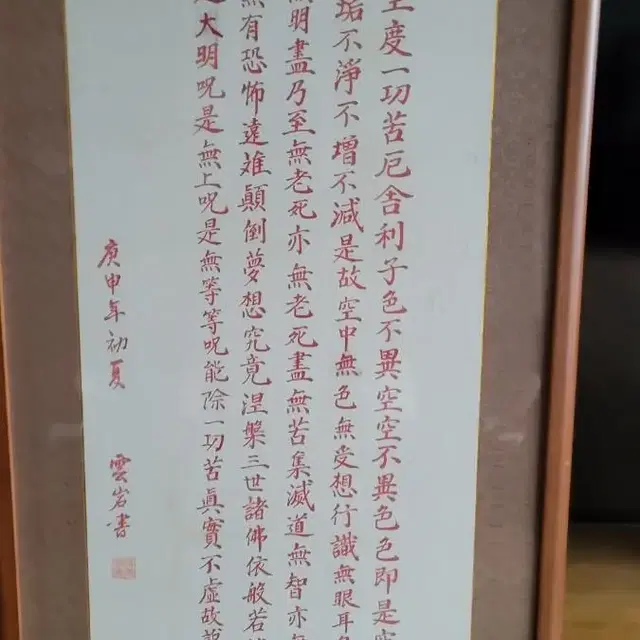 度一切苦厄舍利子色不異空空不異色色即是空
垢不淨不增不減是故空中無色無受想行識無眼耳
無明盡乃至無老死亦無老死盡無苦集滅道無智亦無
無有恐怖遠離顛倒夢想究竟涅槃三世諸佛依般若
大明呪是無上呪是無等等呪能除一切苦眞實不虛故說
庚申年初夏 雲岩書